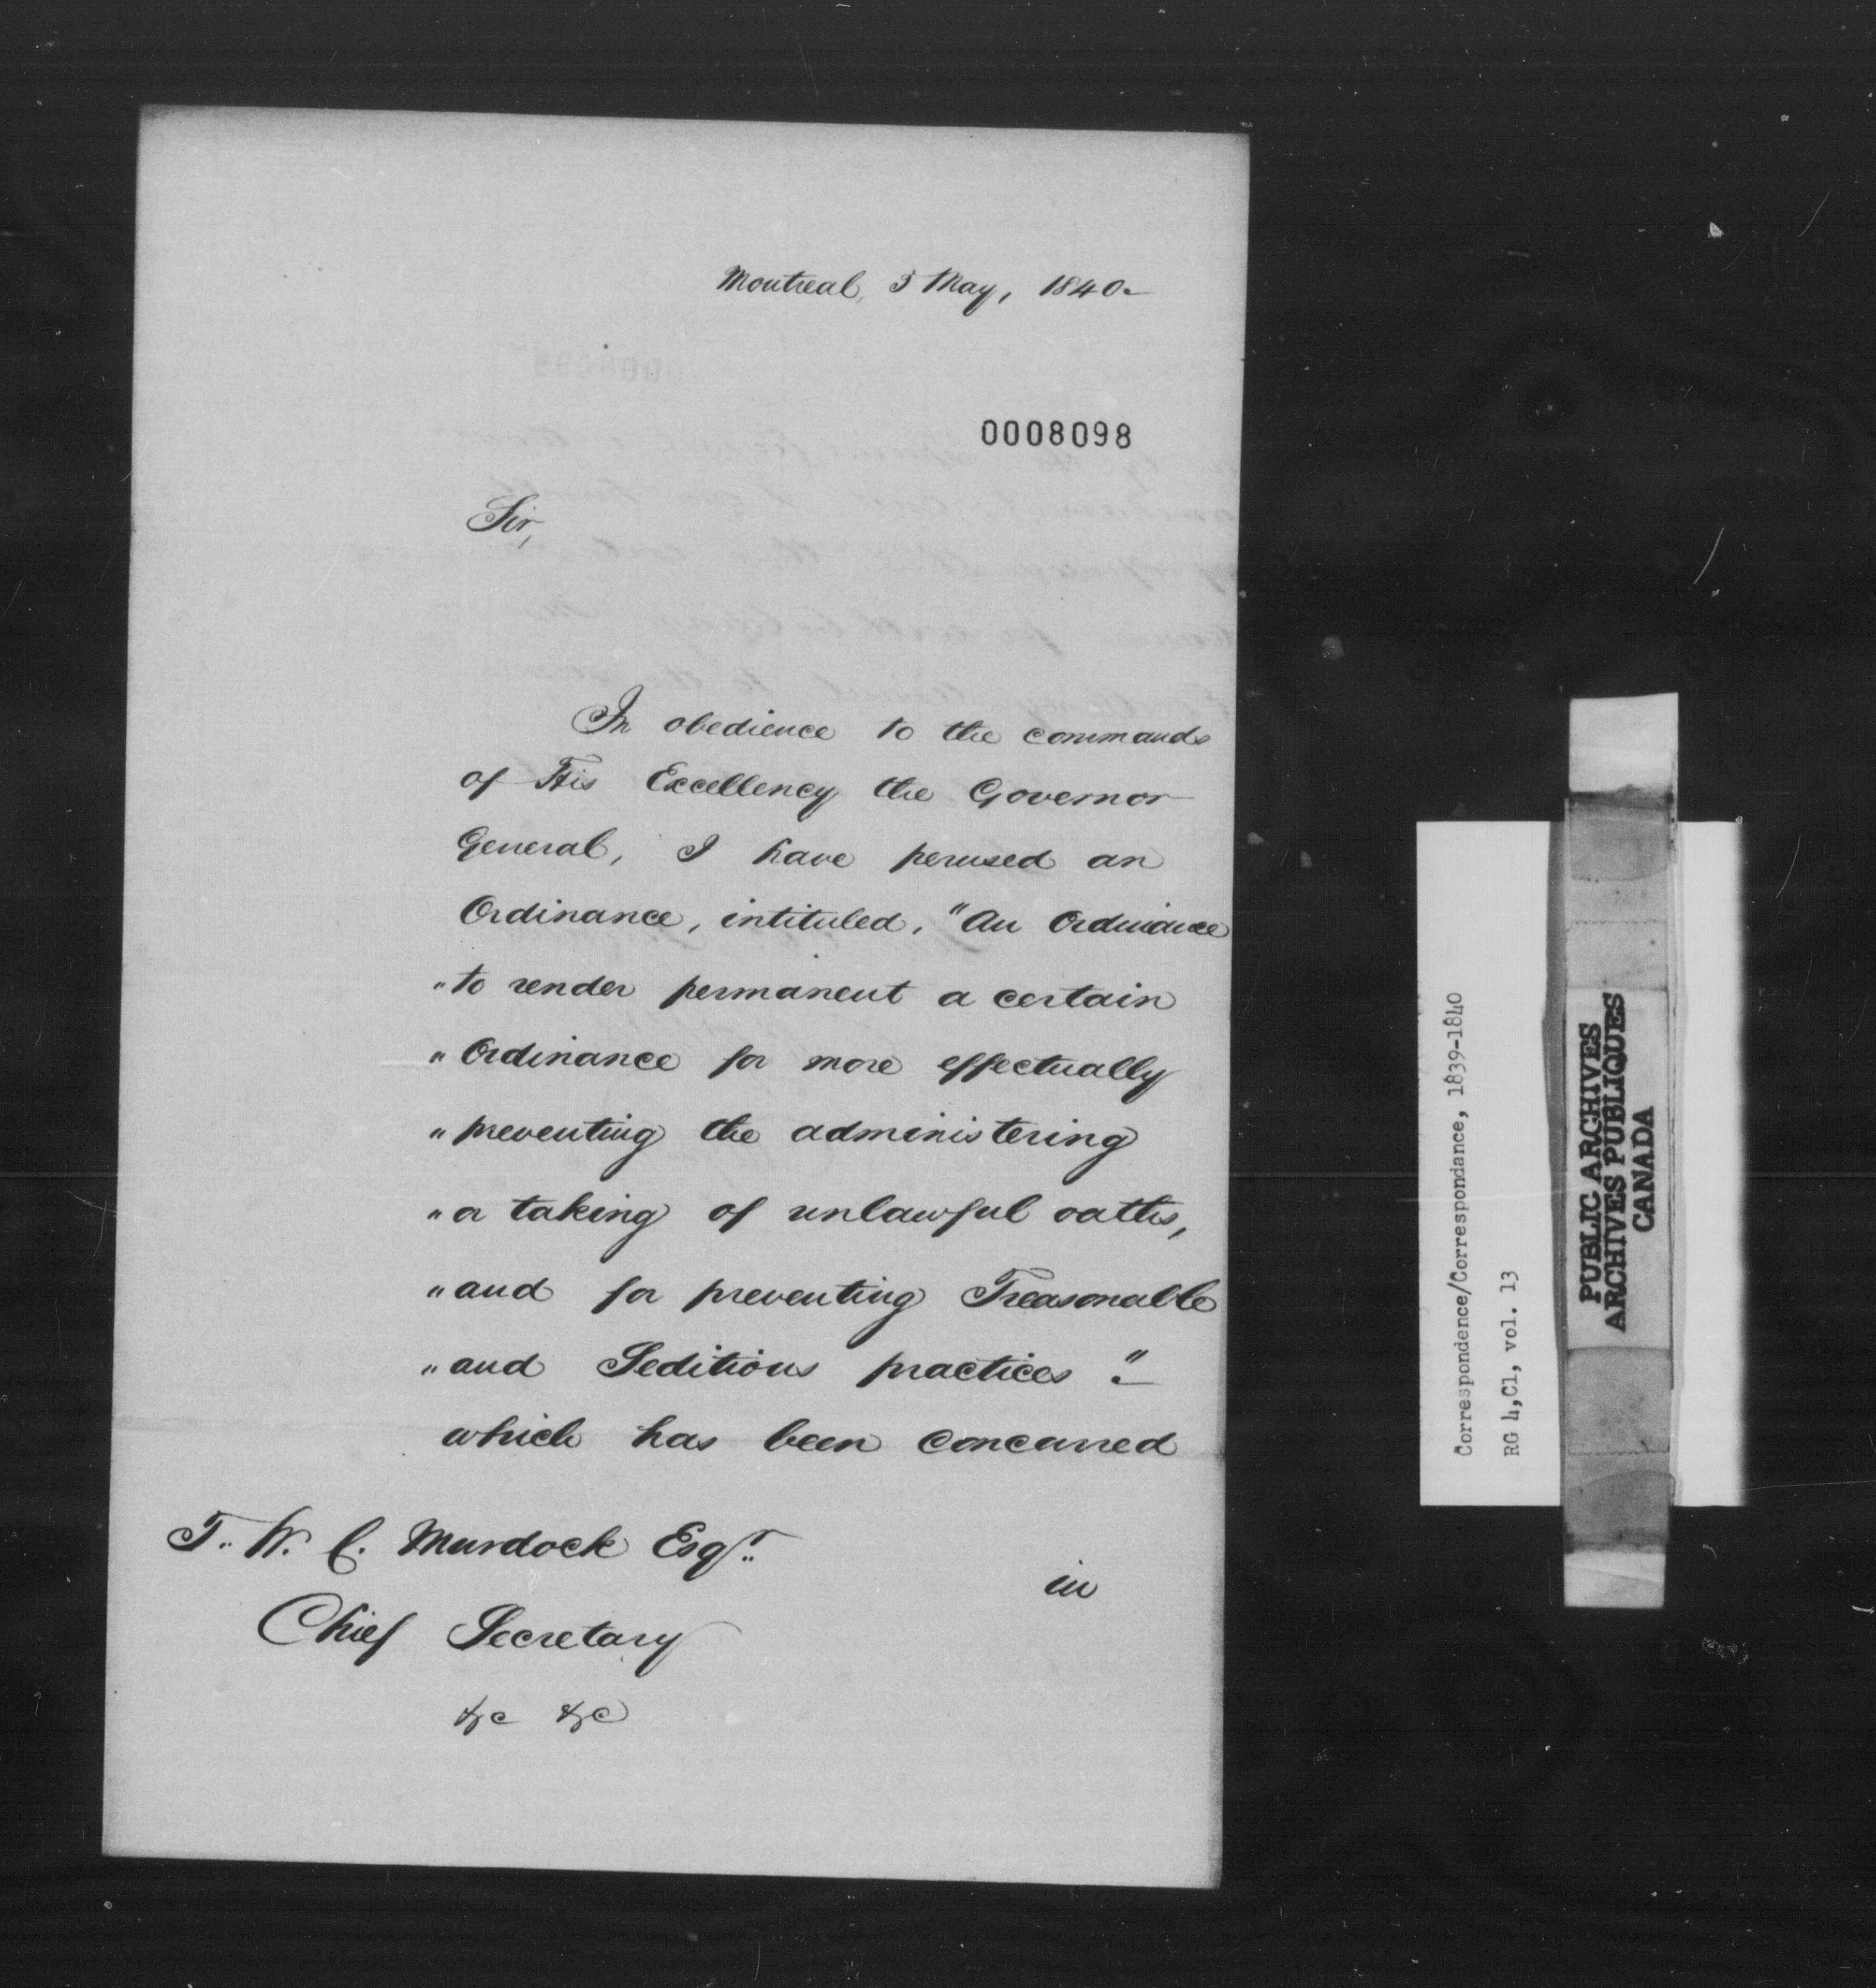 Montreal, 5 May, 1840.
0008098
Sir,
In obedience to the commands
of His Excellency the Governor
General, I have perused an
Ordinance, intituled, "An Ordinance
"to render permanent a certain
"Ordinance for more effectually
"preventing the administering
"or taking of unlawful oaths,
"and for preventing Treasonable
"and Seditious practices".
which has been concurred
in
T. W. C. Murdock Esqr.
Chief Secretary
&c &c
Correspondence/Correspondance, 1839-1840
RG 4,C1, vol. 13
PUBLIC ARCHIVES
ARCHIVES PUBLIQUES
CANADA